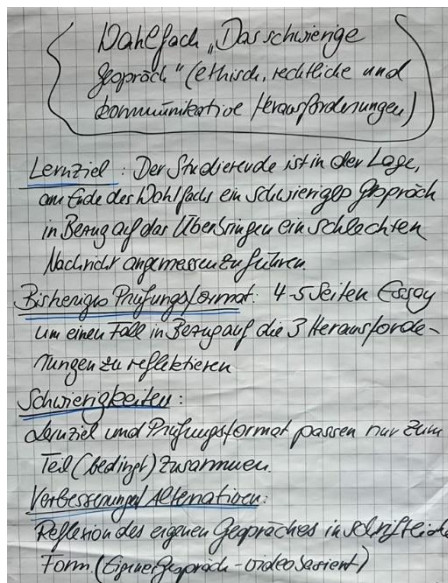 Wahlfach „Das schwierige
Gespräch" (ethisch, rechtliche und
kommunikative Herausforderungen)
Lernziel: Der Studierende ist in der Lage,
am Ende des Wahlfachs ein schwieriges Gespräch
in Bezug auf das Überbringen ein schlechten
Nachricht angemessen zu führen.
Bisheriges Prüfungsformat: 4-5 Seiten Essay
um einen Fall in Bezug auf die 3 Herausforde-
rungen zu reflektieren
Schwierigkeiten:
Lernziel und Prüfungsformat passen nur zum
Teil (bedingt) zusammen.
Verbesserungen/Alternativen:
Reflexion des eigenen Gespräches in schriftliche
Form (Eigenes Gespräch - videobasiert)